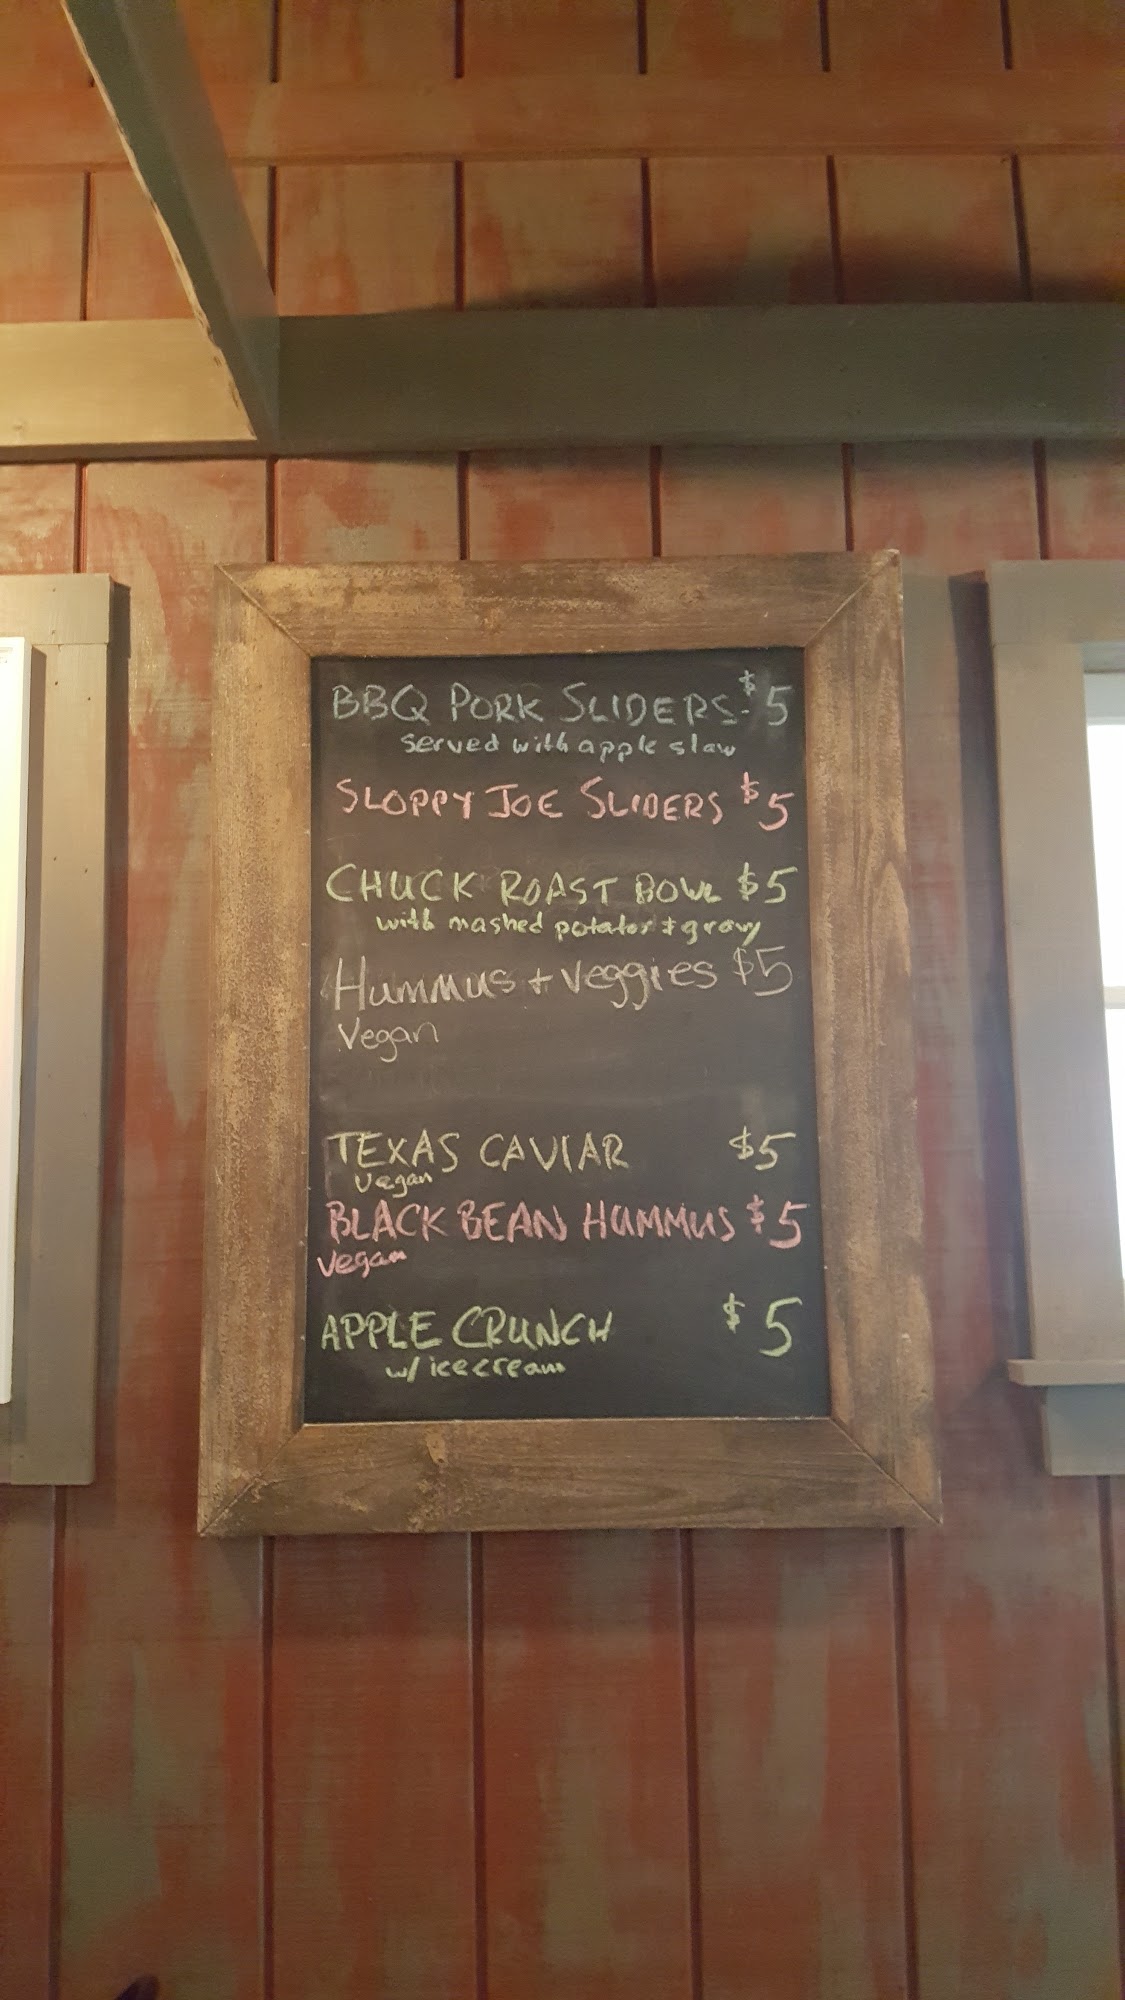 BBQ PORK SLIDERS - $5
served with apple slaw
SLOPPY JOE SLIDERS $5
CHUCK ROAST BOWL $5
with mashed potator + gravy
Hummus + Veggies $5
Vegan
TEXAS CAVIAR $5
vegan
BLACK BEAN HUMMUS $5
vegan
APPLE CRUNCH $5
w/ icecream